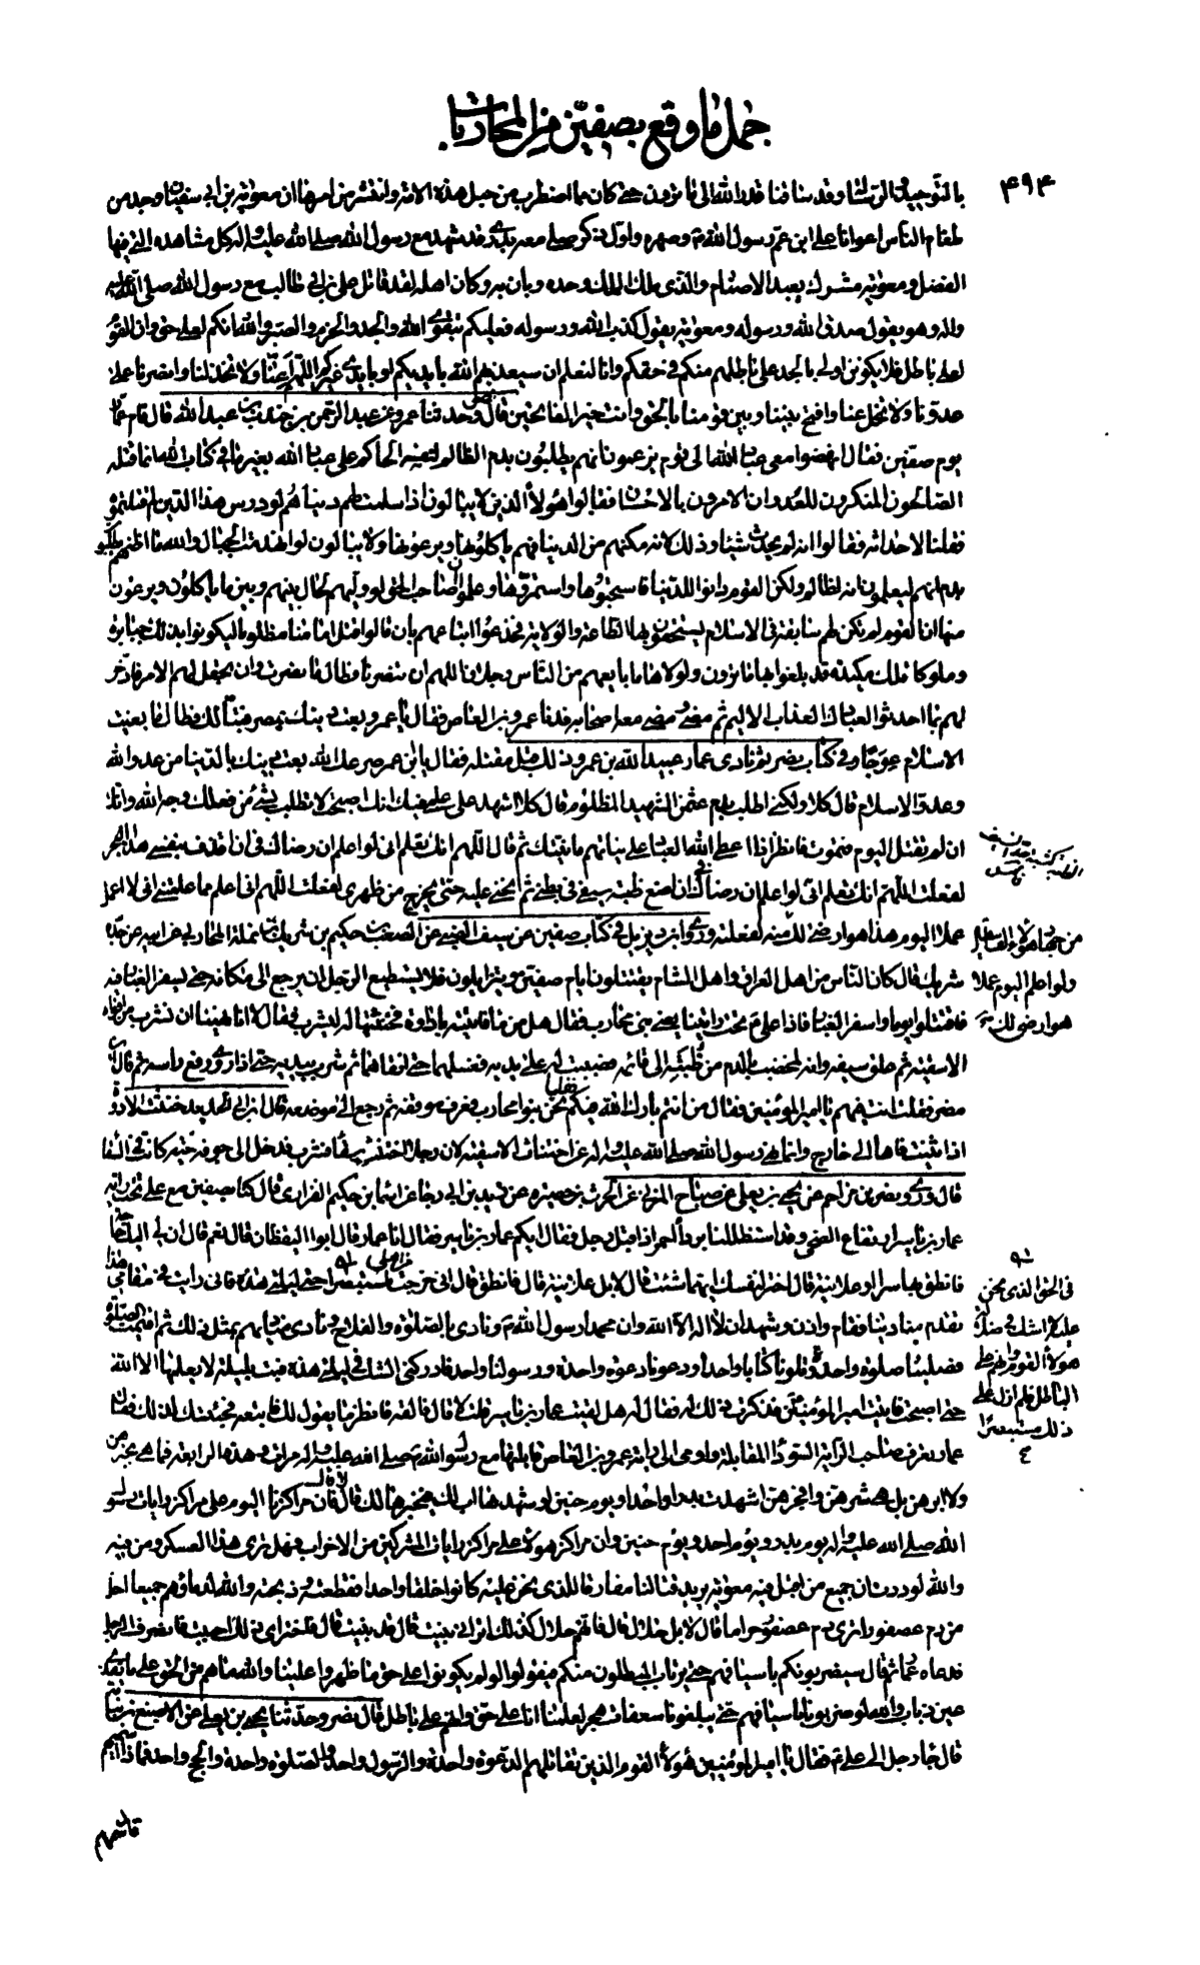 جمل ما وقع بصفين من المحاربات
۴۹۴
بالتوحيد والرسالة وقد ساقنا قدر الله الى ما ترون حتى كان مما اضطرب من حبل هذه الامة وانتشر من امرها ان معوية بن ابي سفيان وجد من
طغام الناس اعوانا على ابن عم رسول الله وصهره واول ذكر صلى معه بدري قد شهد مع رسول الله صلى الله عليه واله كل مشاهده التي فيها
الفضل ومعوية مشرك يعبد الاصنام والذي ملك الملك وحده وبان به وكان اهله لقد قاتل علي بن ابي طالب مع رسول الله صلى الله عليه
واله وهو يقول صدق الله ورسوله ومعوية يقول كذب الله ورسوله فعليكم بتقوى الله والجد والحزم والصبر والله انكم لعلى حق وان القوم
لعلى باطل فلا يكونن اولى بالجد على باطلهم منكم في حقكم وانا لنعلم ان سيعذبهم الله بايديكم او بايدي غيركم اللهم اعنا ولا تخذلنا وانصرنا على
عدونا ولا تحل عنا وافتح بيننا وبين قومنا بالحق وانت خير الفاتحين قال نصر وحدثنا عمرو عن عبد الرحمن بن جندب عن عبد الله قال قام عمار
يوم صفين فقال انهضوا معي عباد الله الى قوم يزعمون انهم يطلبون بدم الظالم لنفسه الحاكم على عباد الله بغير ما في كتاب الله انما قتله
الصالحون المنكرون للعدوان الامرون بالاحسان فقالوا هؤلاء الذين لا يبالون اذا سلمت لهم دنياهم لو درس هذا الدين لم قتلتموه
فقلنا لاحداثه فقالوا انه لم يحدث شيئا وذلك لانه مكنهم من الدنيا فهم ياكلونها ويرعونها ولا يبالون لو انهدت الجبال والله ما اظنهم يطلبون
بدم انهم ليعلمون انه لظالم ولكن القوم ذاقوا الدنيا فاستحبوها واستمرؤها وعلموا ان صاحب الحق لو وليهم لحال بينهم وبين ما ياكلون ويرعون
منها ان القوم لم يكن لهم سابقة في الاسلام يستحقون بها الطاعة والولاية فخدعوا اتباعهم بان قالوا قتل امامنا مظلوما ليكونوا بذلك جبابرة
وملوكا تلك مكيدة قد بلغوا بها ما ترون ولولاها ما بايعهم من الناس رجلان اللهم ان تنصرنا فطال ما نصرت وان تجعل لهم الامر فادخر
لهم بما احدثوا لعبادك العذاب الاليم ثم مضى ومضى معه اصحابه فدنا من عمرو بن العاص فقال يا عمرو بعت دينك بمصر فتبا لك فطال ما بغيت
الاسلام عوجا وفي كتاب نصر ثم نادى عمار عبيد الله بن عمر وذلك قبل مقتله فقال يا ابن عمر صرعك الله بعت دينك بالدنيا من عدو الله
وعدو الاسلام قال كلا ولكني اطلب بدم عثمن الشهيد المظلوم قال كلا اشهد على علمي فيك انك اصبحت لا تطلب بشيء من فعلك وجه الله وانك
ان لم تقتل اليوم فتموت فانظر اذا اعطى الله العباد على نياتهم ما نيتك ثم قال اللهم انك تعلم اني لو اعلم ان رضاك في ان اقذف بنفسي هذا البحر
لفعلت اللهم انك تعلم اني لو اعلم ان رضاك في ان اضع ظبة سيفي في بطني ثم انحني عليه حتى يخرج من ظهري لفعلت اللهم اني اعلم مما علمتني اني لا اعمل
عملا اليوم هذا هو ارضى لك منه لفعلته وروى ابن ديزيل في كتاب صفين عن سيف الضبي عن الصعب بن حكيم بن شريك بن نملة المحاربي عن ابيه عن جده
شريك قال كان الناس من اهل العراق واهل الشام يقتتلون ايام صفين ويتزايلون فلا يستطيع الرجل ان يرجع الى مكانه حتى يسفر الغبار عنه
فاقتتلوا يوما واسفر الغبار فاذا علي تحت رايتنا يعني بني محارب فقال هل من ماء فاتيته باداوة فخنثتها له ليشرب فقال لا انا نهينا ان نشرب من افواه
الاسقية ثم علق سيفه وانه لمخضب بالدم من ظبته الى قائمه فصببت له على يديه فغسلهما حتى انقاهما ثم شرب بيديه حتى اذا روى رفع راسه ثم قال اين
مضر فقلت انت فيهم يا امير المؤمنين فقال من انتم بارك الله فيكم فقلنا نحن بنو محارب فعرف موقفه ثم رجع الى موضعه قال ابن ابي الحديد خنثت الاداوة
اذا ثنيت فاها الى خارج وانما نهى رسول الله صلى الله عليه واله عن اختناث الاسقية لان رجلا اختنث سقاء فشرب فدخل الى جوفه حية كانت في السقاء
قال وروى نصر بن مزاحم عن يحيى بن يعلى عن صباح المزني عن الحرث بن حصيرة عن زيد بن ابي رجا عن اسما بن حكيم الفزاري قال كنا بصفين مع علي تحت راية
عمار بن ياسر ارتفاع الضحى وقد استظللنا برداء احمر اذ اقبل رجل فقال ايكم عمار بن ياسر فقال انا عمار قال ابو اليقظان قال نعم قال ان لي اليك حاجة
فانطق بها سرا او علانية قال اختر لنفسك ايهما شئت قال لا بل علانية قال فانطق قال اني خرجت من اهلي مستبصرا حتى ليلتي هذه فاني رايت في منامي
تقدم منادينا فقام واذن وشهد ان لا اله الا الله وان محمدا رسول الله ونادى بالصلوة والفلاح ونادى مناديهم بمثل ذلك ثم اقيمت الصلوة
فصلينا صلوة واحدة وتلونا كتابا واحدا ودعونا دعوة واحدة ورسولنا واحد فادركني الشك في ليلتي هذه فبت بليلة لا يعلمها الا الله
حتى اصبحت فاتيت امير المؤمنين فذكرت ذلك له فقال لي هل لقيت عمار بن ياسر قلت لا قال فالقه فانظر ما يقول لك فاتبعه فجئتك لذلك فقال
عمار تعرف صاحب الراية السوداء المقابلة واومى الى راية عمرو بن العاص قاتلتها مع رسول الله صلى الله عليه واله ثلث مرات وهذه الرابعة فما هي بخيرهن
ولا ابرهن بل هي شرهن وافجرهن اشهدت بدرا واحدا ويوم حنين او شهدها اب لك فيخبرك لك قال لا قال فان مراكزنا اليوم على مراكز رايات رسول
الله صلى الله عليه واله يوم بدر ويوم احد ويوم حنين وان مراكز هؤلاء على مراكز رايات المشركين من الاحزاب فهل ترى هذا العسكر ومن فيه
والله لوددت ان جميع من اقبل فيه معوية يريد قتالنا مفارقا للذي نحن عليه كانوا خلقا واحدا فقطعته وذبحته والله لدماؤهم جميعا احل
من دم عصفور اترى دم عصفور حراما قال لا بل حلال قال فانهم حلال كذلك اتراني بينت قال قد بينت قال فاختر اي ذلك احببت فانصرف الرجل
فدعاه عمار ثم قال سيضربونكم باسيافهم حتى يرتاب المبطلون منكم فيقولوا لو لم يكونوا على حق ما ظهروا علينا والله ما هم من الحق على ما يقذي
عين ذباب والله لو ضربونا باسيافهم حتى يبلغونا سعفات هجر لعلمنا انا على حق وانهم على باطل قال نصر وحدثنا يحيى بن يعلى عن الاصبغ بن نباتة
قال جاء رجل الى علي فقال يا امير المؤمنين هؤلاء القوم الذين نقاتلهم الدعوة واحدة والرسول واحد والصلوة واحدة والحج واحد فماذا نسميهم
من جهاد هؤلاء الفاسقين
ولو اعلم اليوم عملا
هو ارضى لك منه
في الحق الذي نحن
عليه لا اشك في ضلالة
هؤلاء القوم وانهم على
الباطل فلم ازل على
ذلك مستبصرا
قال سمهم